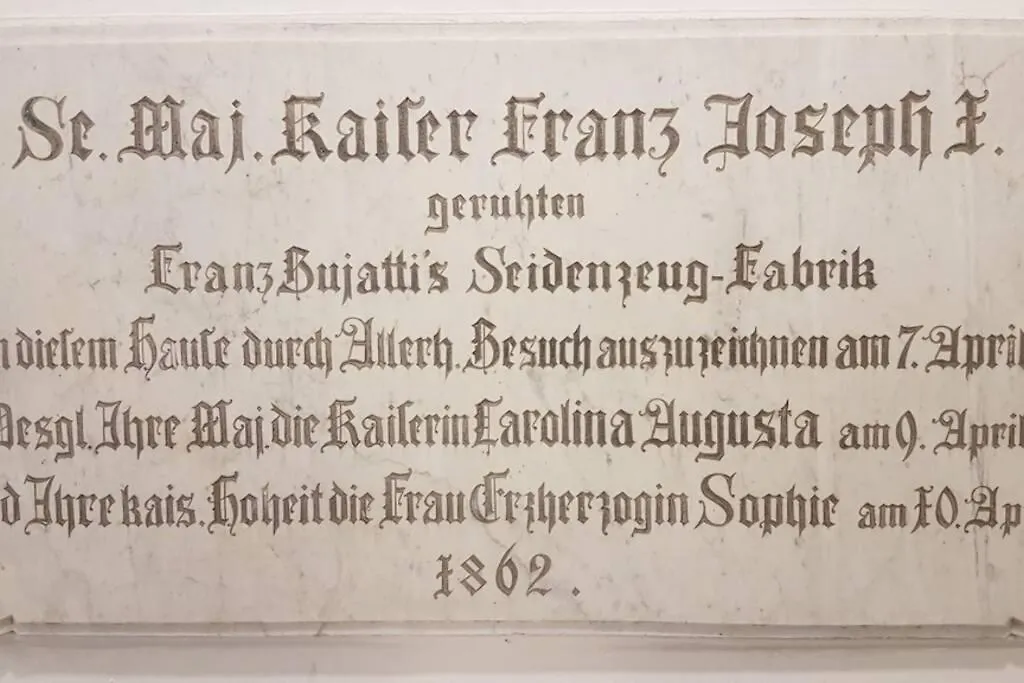 Se. Maj. Kaiser Franz Joseph I.
geruhten
Franz Bujatti's Seidenzeug-Fabrik
n diesem Hause durch Allerh. Besuch auszuzeichnen am 7. April
Desgl. Ihre Maj. die Kaiserin Carolina Augusta am 9. April
d Ihre kais. Hoheit die Frau Erzherzogin Sophie am 10. Ap
1862.